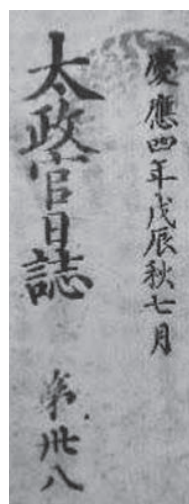 慶應四年戊辰秋七月
太政官日誌 第卅八